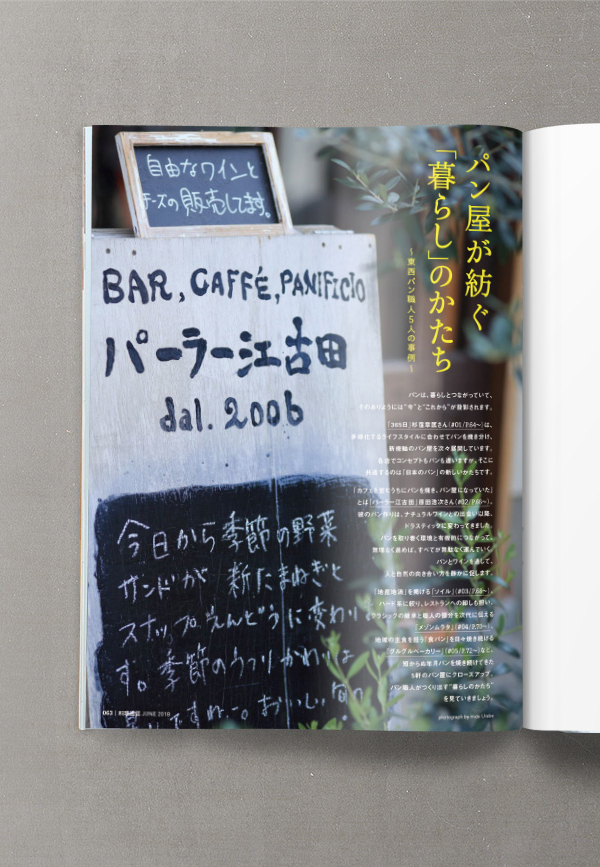 パン屋が紡ぐ
「暮らし」のかたち
〜東西パン職人5人の事例〜
自由なワインと
チーズの販売してます。
BAR, CAFFÉ, PANIFICIO
パーラー江古田
dal. 2006
今日から季節の野菜
サンドが 新たまねぎと
スナップえんどうに変わりま
す。季節のうつりかわりは
ですねー。おいしい旬の
パンは、暮らしとつながっていて、
そのありようには“今”と“これから”が投影されます。
「365日」杉窪章匡さん（#01/P.64〜）は、
多様化するライフスタイルに合わせてパンを焼き分け、
新機軸のパン屋を次々展開しています。
各店でコンセプトもパンも違いますが、そこに
共通するのは「日本のパン」の新しいかたちです。
「カフェを営むうちにパンを焼き、パン屋になっていた」
とは「パーラー江古田」原田浩次さん（#02/P.66〜）。
彼のパン作りは、ナチュラルワインとの出会い以降、
ドラスティックに変わってきました。
パンを取り巻く環境と有機的につながって、
無理なく進めば、すべてが無駄なく運んでいく。
パンとワインを通して、
人と自然の向き合い方を静かに促します。
「地産地消」を掲げる「ソイル」（#03/P.68〜）。
ハード系に絞り、レストランへの卸しも担い、
クラシックの継承と職人の部分を次代に伝える
「メゾンムラタ」（#04/P.70〜）。
地域の主食を担う「食パン」を日々焼き続ける
「グルグルベーカリー」（#05/P.72〜）など、
5軒のパン屋にクローズアップ。
パン職人がつくり出す“暮らしのかたち”
を見ていきましょう。
063 | 料理通信 JUNE 2018
photograph by Hide Urabe